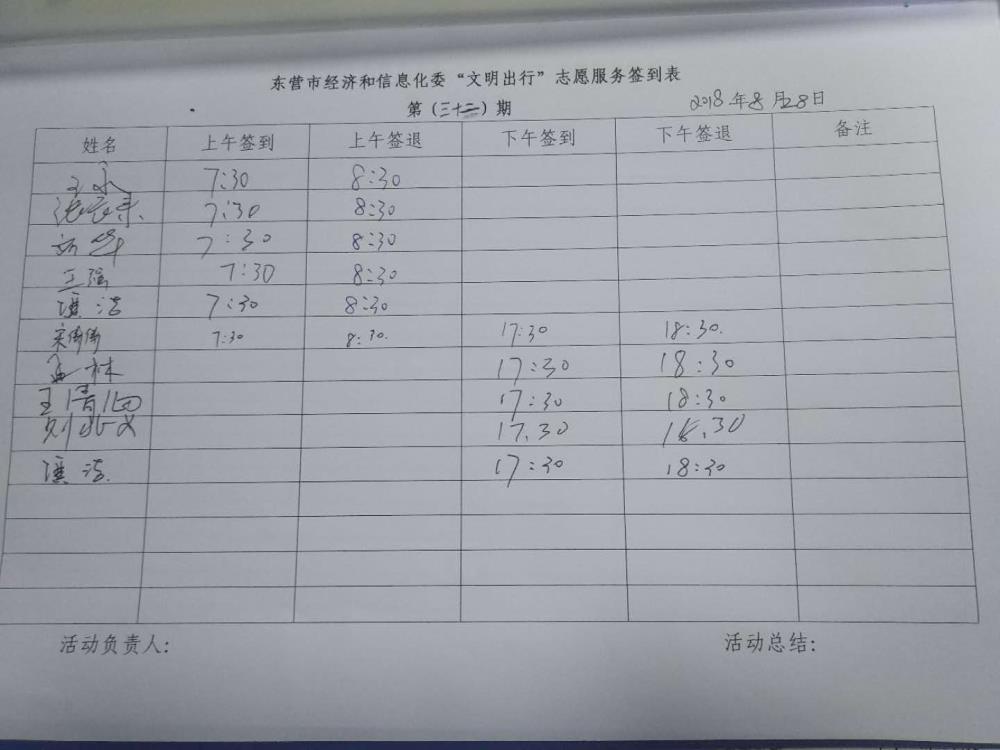 东营市经济和信息化委“文明出行”志愿服务签到表
第（三十二）期 2018年8月28日
姓名 上午签到 上午签退 下午签到 下午签退 备注
7:30 8:30
7:30 8:30
7:30 8:30
王强 7:30 8:30
7:30 8:30
宋倩倩 7:30 8:30. 17:30 18:30.
林 17:30 18:30
王 17:30 18:30
17.30 18.30
17:30 18:30
活动负责人： 活动总结：